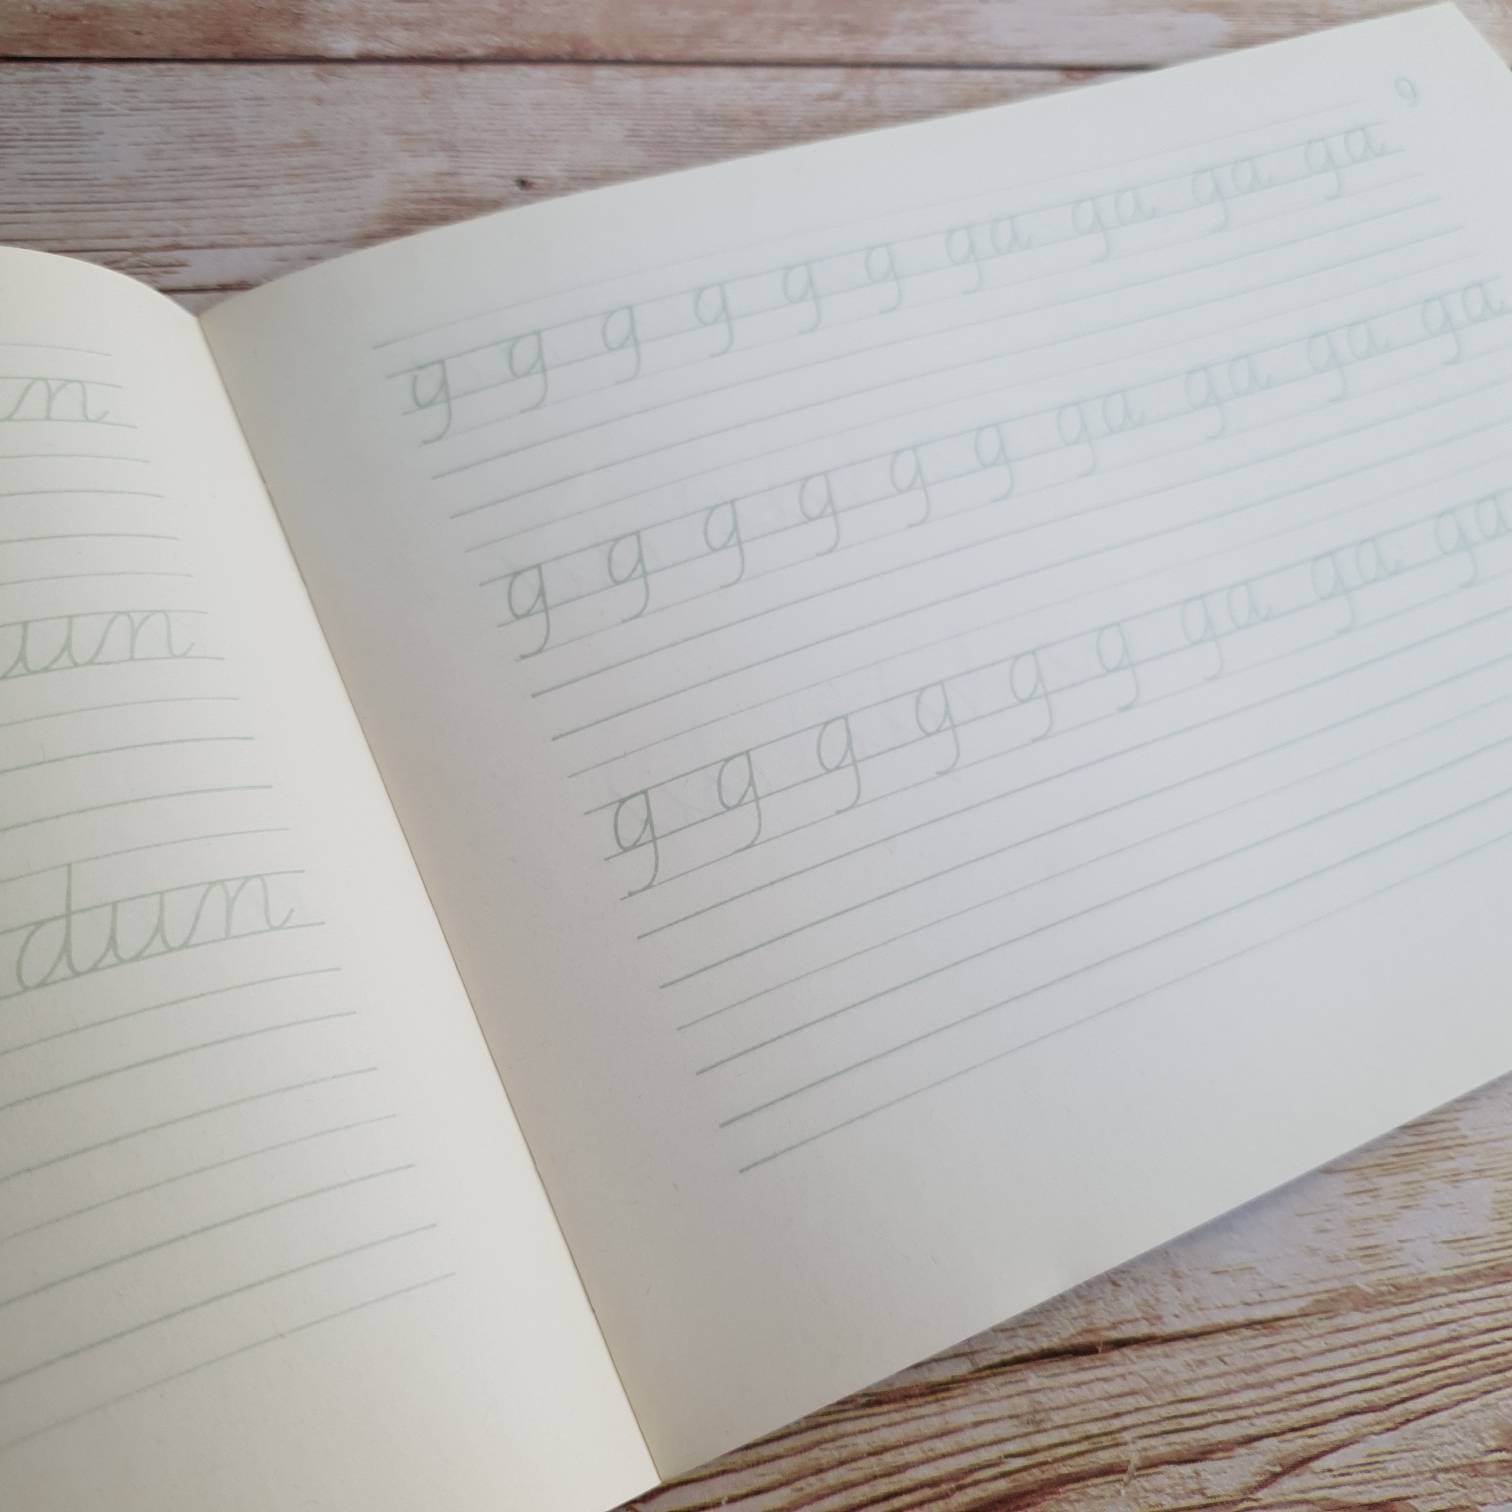 n
un
dun
9
g g g g g g ga ga ga ga
g g g g g g ga ga ga ga
g g g g g g ga ga ga